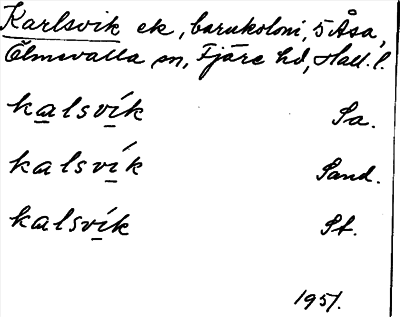 Karlsvik ek, barnkoloni, S Åsa,
Ölmevalla sn, Fjäre hd, Hall. l.
kalsvík Sa.
kalsvík Sand.
kalsvík St.
1951.